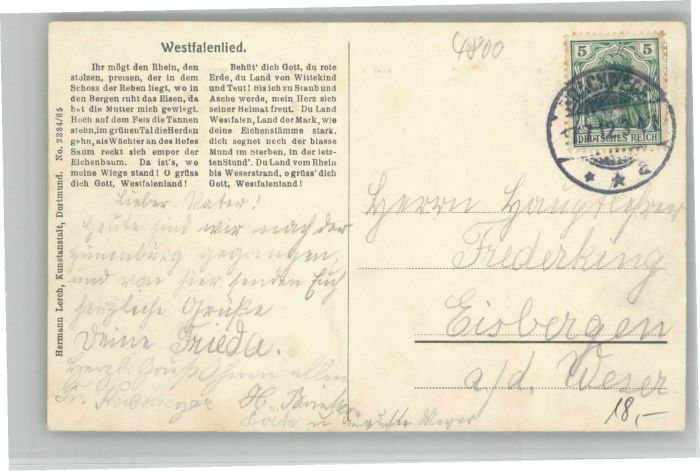 4800
Westfalenlied.
Ihr mögt den Rhein, den
stolzen, preisen, der in dem
Schoss der Reben liegt, wo in
den Bergen ruht das Eisen, da
hat die Mutter mich gewiegt.
Hoch auf dem Fels die Tannen
stehn, im grünen Tal die Herden
gehn, als Wächter an des Hofes
Saum reckt sich empor der
Eichenbaum. Da ist's, wo
meine Wiege stand! O grüss
dich Gott, Westfalenland!
Behüt' dich Gott, du rote
Erde, du Land von Wittekind
und Teut! Bis ich zu Staub und
Asche werde, mein Herz sich
seiner Heimat freut. Du Land
Westfalen, Land der Mark, wie
deine Eichenstämme stark,
dich segnet noch der blasse
Mund im Sterben, in der letz-
ten Stund'. Du Land vom Rhein
bis Weserstrand, o grüss' dich
Gott, Westfalenland!
Hermann Lorch, Kunstanstalt, Dortmund. No. 2384/85
Lieber Vater!
Heute sind wir nach der
Hünenburg gegangen,
und von hier senden Euch
herzliche Grüße
Deine Frieda.
Herzl. Gruß Ihnen allen
H.
u. Auguste Meyer
5 5
DEUTSCHES REICH
Herrn Hauptlehrer
Frederking
Eisbergen
a/d. Weser.
18,-